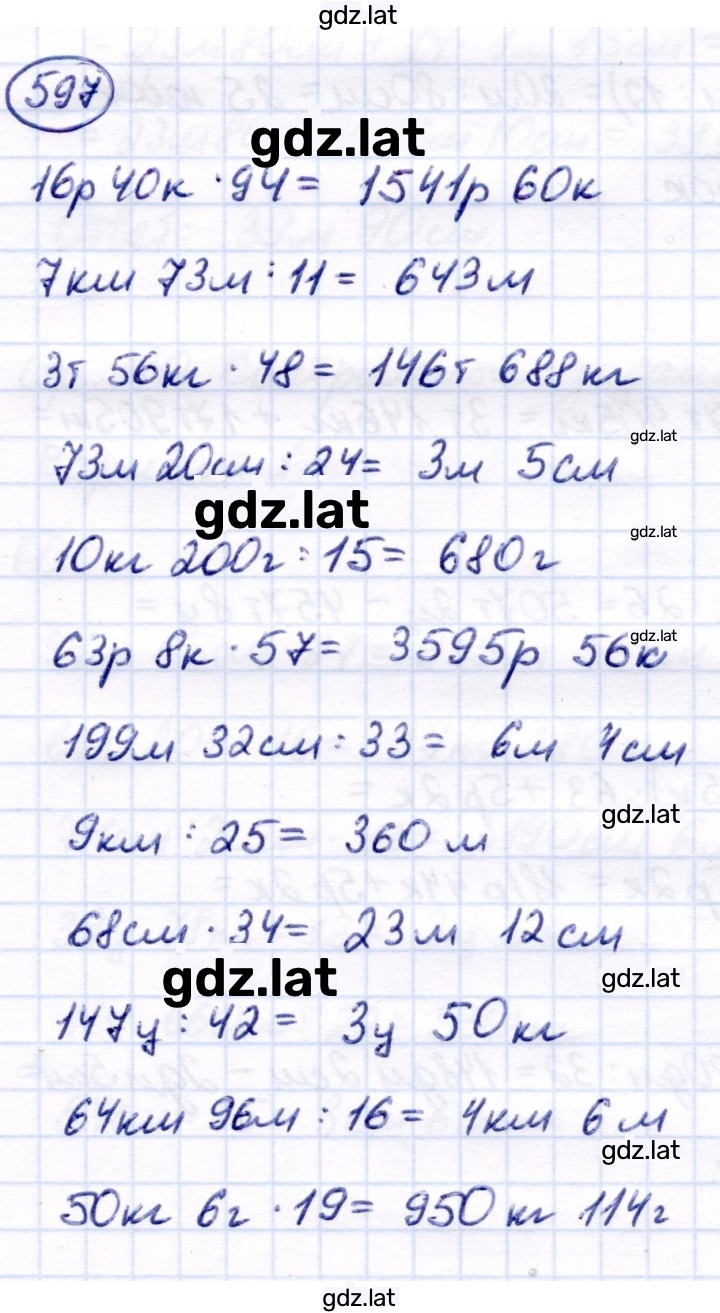 gdz.lat
597
gdz.lat
16р 40к · 94 = 1541р 60к
7км 73м : 11 = 643м
3т 56кг · 48 = 146т 688кг
gdz.lat
73м 20см : 24 = 3м 5см
gdz.lat
gdz.lat
10кг 200г : 15 = 680г
gdz.lat
63р 8к · 57 = 3595р 56к
199м 32см : 33 = 6м 4см
gdz.lat
9км : 25 = 360м
68см · 34 = 23м 12см
gdz.lat
gdz.lat
147ц : 42 = 3ц 50кг
64км 96м : 16 = 4км 6м
gdz.lat
50кг 6г · 19 = 950кг 114г
gdz.lat